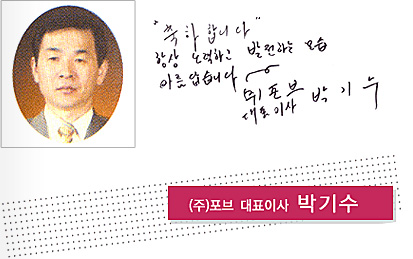 "축하합니다"
항상 노력하고 발전하는 모습
아름답습니다
(주)포브
대표이사 박기수
(주)포브 대표이사 박기수